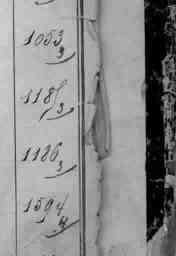 1053
3
118
3
1186
3
1594